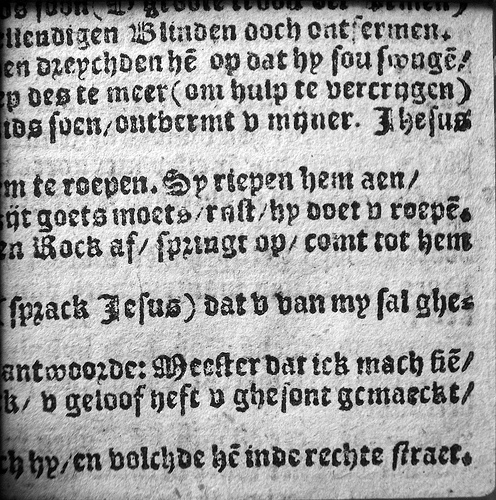 ds soen (O groote troost der Armen)
ellendigen Blinden doch ontfermen.
en dreychden hē op dat hy sou swygē/
ep des te meer (om hulp te vercrijgen)
ids soen/ontbermt v mijner. Jhesus
m te roepen. Sy riepen hem aen/
zijt goets moets/rijst/hy doet v roepē.
en Rock af/ springt op/ comt tot hem
(sprack Jesus) dat v van my sal ghe-
antwoorde: Meester dat ick mach siē/
k/ v geloof heft v ghesont gemaeckt/
ch hy/en volchde hē inde rechte straet.